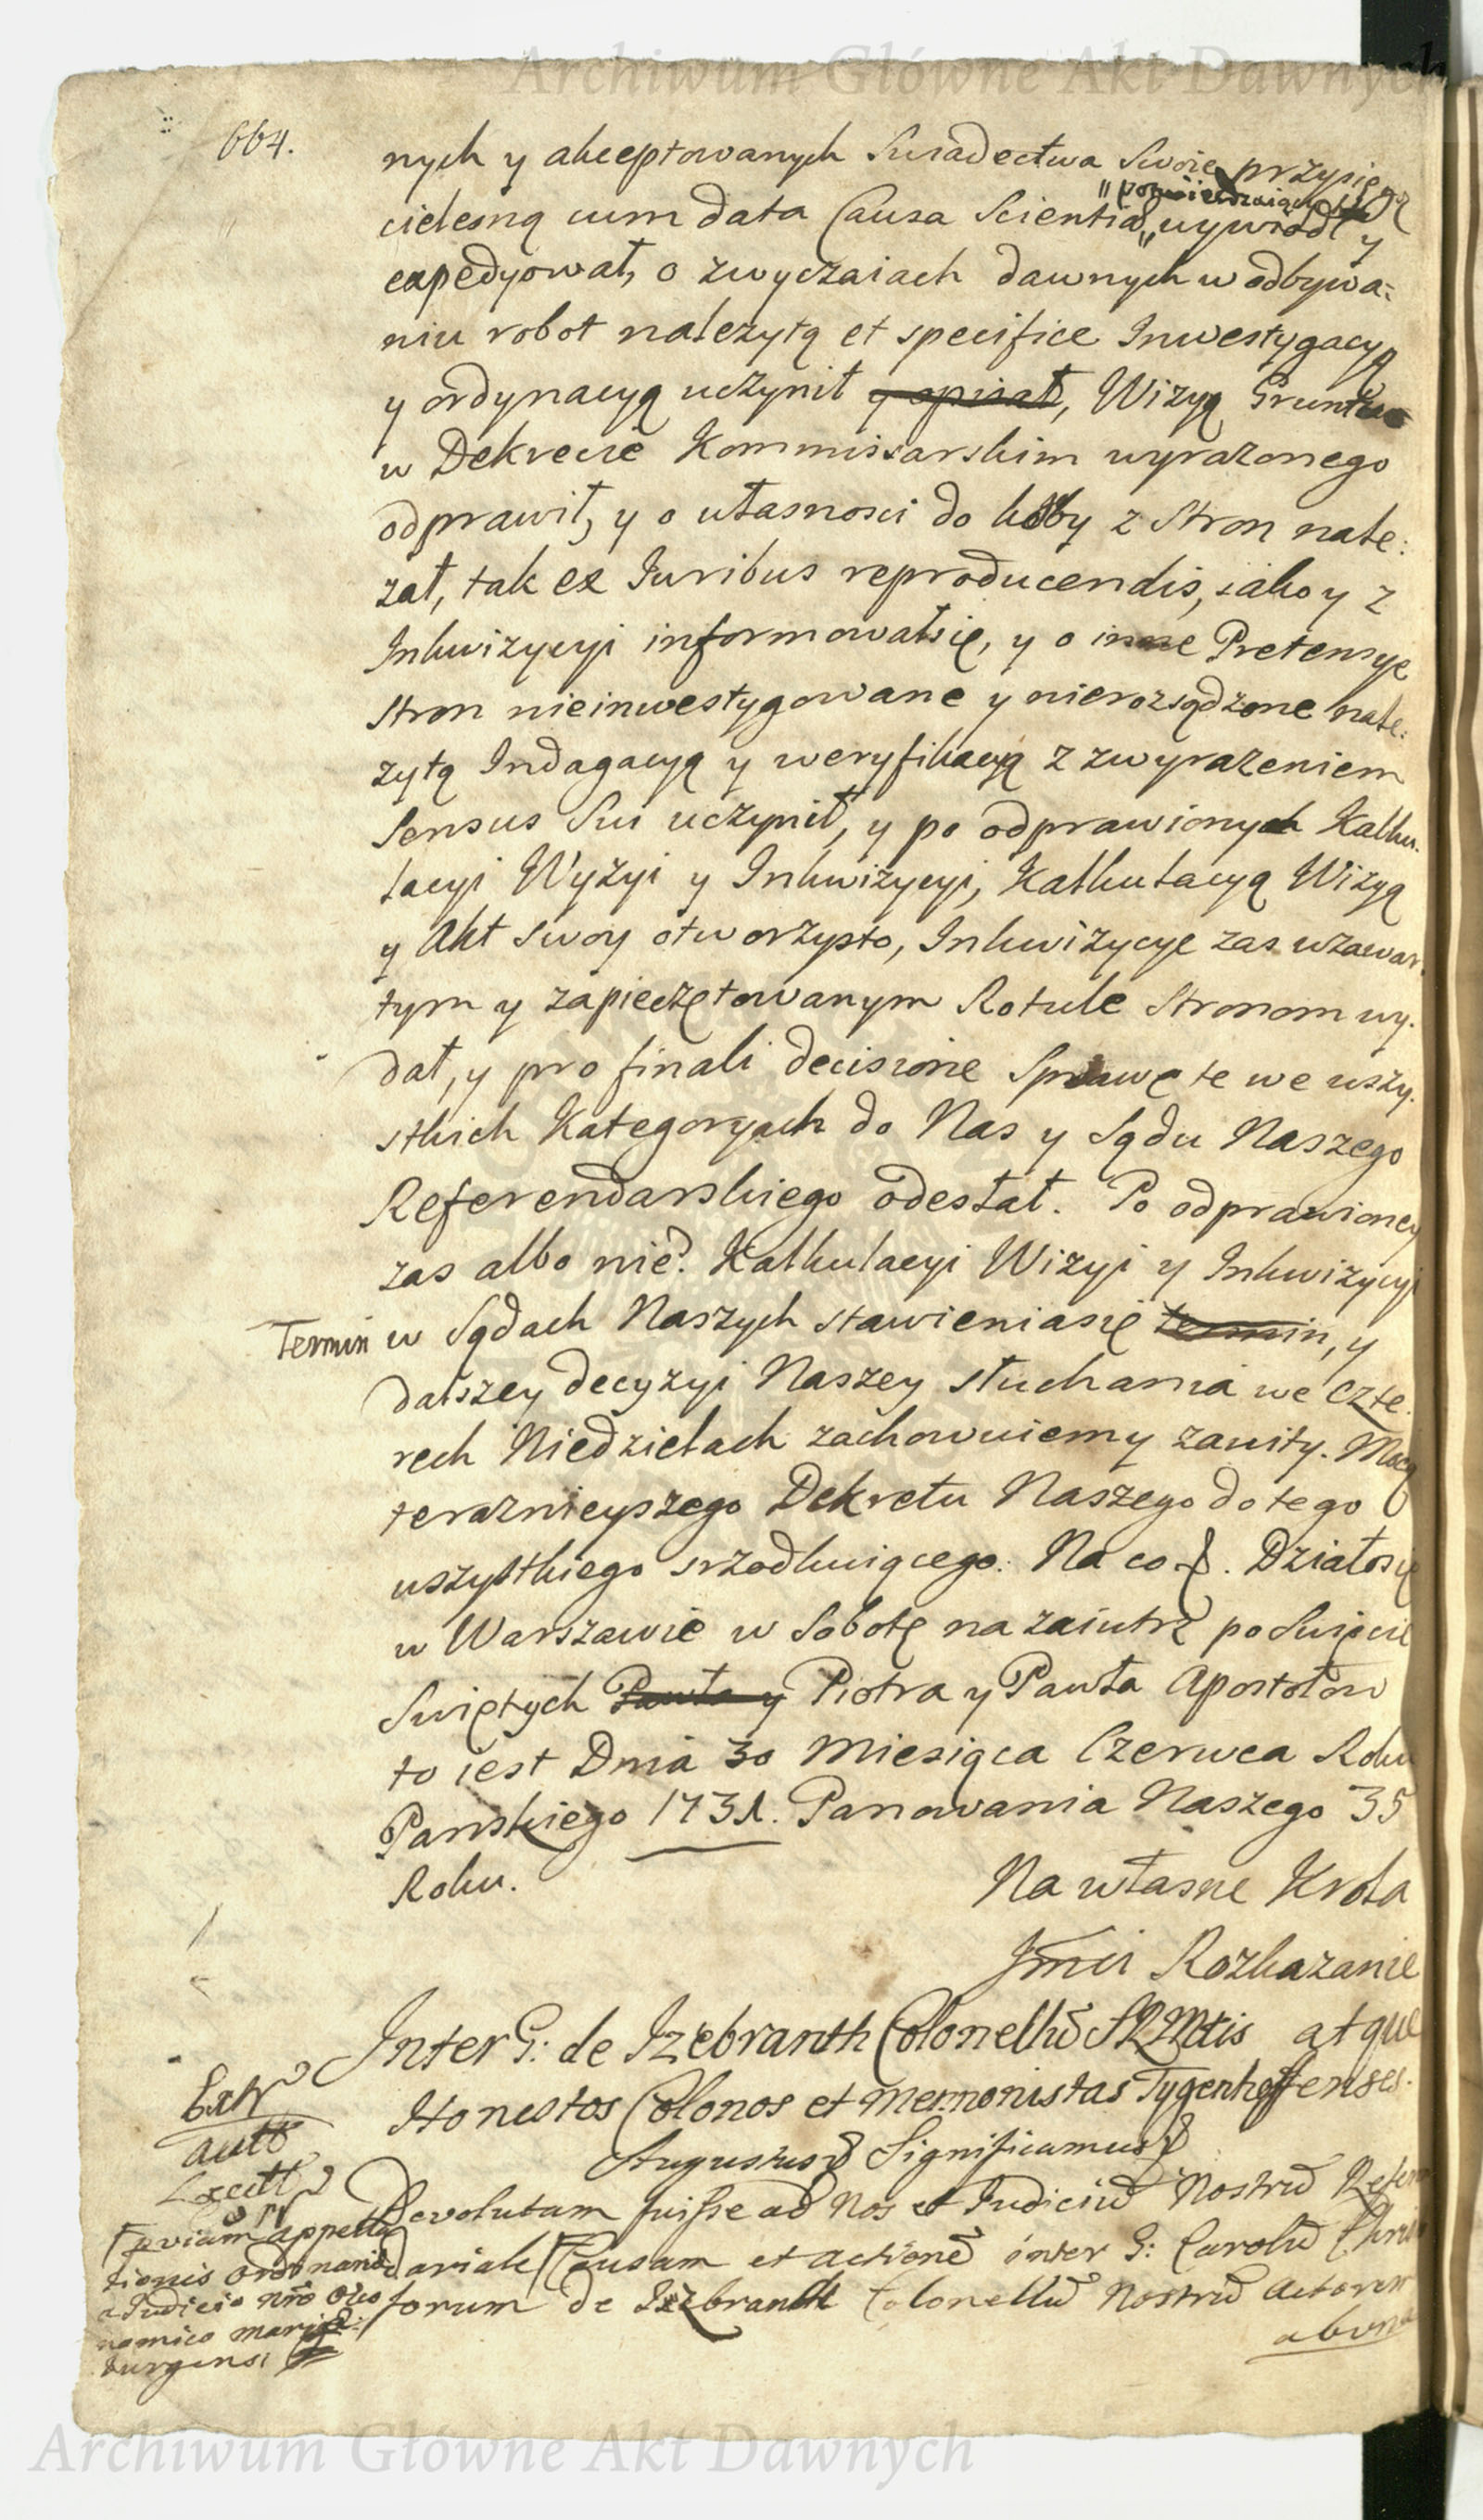 Archiwum Główne Akt Dawnych
664.
nych y akceptowanych Swiadectwa Swoie przysięgą
"potwierdzaiących
cielesną cum data Causa Scientiæ,, wywiodł y
expedyował, o zwyczaiach dawnych w odbywa:
niu robot należytą et specifice Inwestygacyą
y ordynacyą uczynił y opisał, Wizyą Gruntu
w Dekrecie Kommissarskim wyrażonego
odprawił, y o własnosci do koby z Stron nale:
zał, tak ex Juribus reproducendis, iako y z
Inkwizycyi informowałsię, y o inne Pretensye
Stron nieinwestygowane y nierozsądzone nale:
zytą Indagacyą y weryfikacyą z zwyrażeniem
Sensus Sui uczynił, y po odprawionych Kalku.
lacyi Wyzyi y Inkwizycyi, Kalkulacyą Wizyą
y Akt swoy otworzysto, Inkwizycye zas wzawar.
tym y zapieczętowanym Rotule Stronom wy.
dał, y pro finali decisione Sprawę te we wszy.
stkich Kategoryach do Nas y Sądu Naszego
Referendarskiego odesłał. Po odprawioney
zas albo nie? Kalkulacyi Wizyi y Inkwizycyi
Termin w Sądach Naszych stawieniasię termin, y
dalszey decyzyi Naszey słuchania we czte.
rech Niedzielach zachowuiemy zawity. Mocą
teraznieyszego Dekretu Naszego do tego
wszystkiego srzodkuiącego. Na co &. Działosię
w Warszawie w Sobotę na zaiutrz po Swięcie
Swiętych Pawła y Piotra y Pawła Apostołow
to iest Dnia 30 Miesiąca Czerwca Roku
Panskiego 1731. Panowania Naszego 35
Roku.
Na własne Krola
Jmci Rozkazanie
Inter G: de Izebranth Colonellũ SRMtis atque
Honestos Colonos et Memnonistas Tygenhoffenses.
Augustus & Significamus &
Devolutam fuisse ad Nos et Judiciũ Nostrũ Referen
dariale Causam et actionẽ inter G: Carolũ
forum de Izebrandt Colonellũ Nostrũ Actorem
ab una
Extr
auth
per viam appella
tionis ordinariæ
a Judicio nro Oeco
nomico Marie
burgensi
Archiwum Główne Akt Dawnych